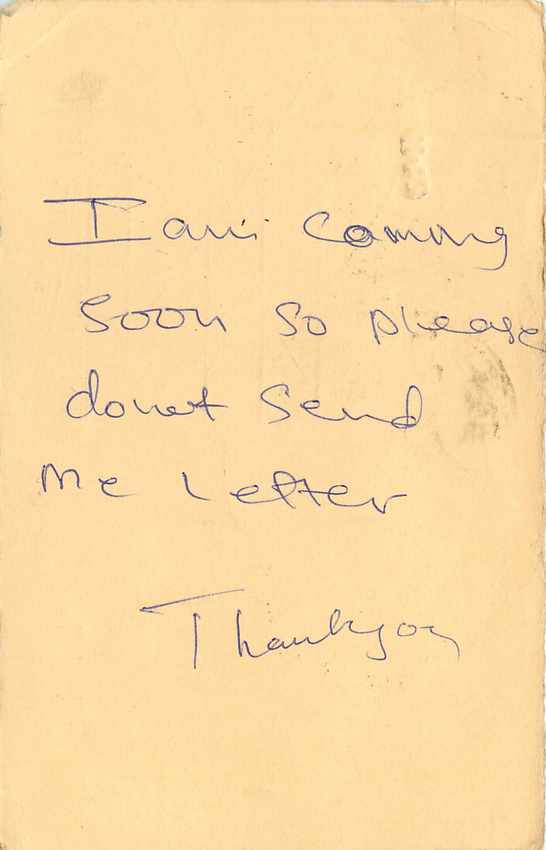 I am coming
soon so please
donet send
me Letter
Thankyou